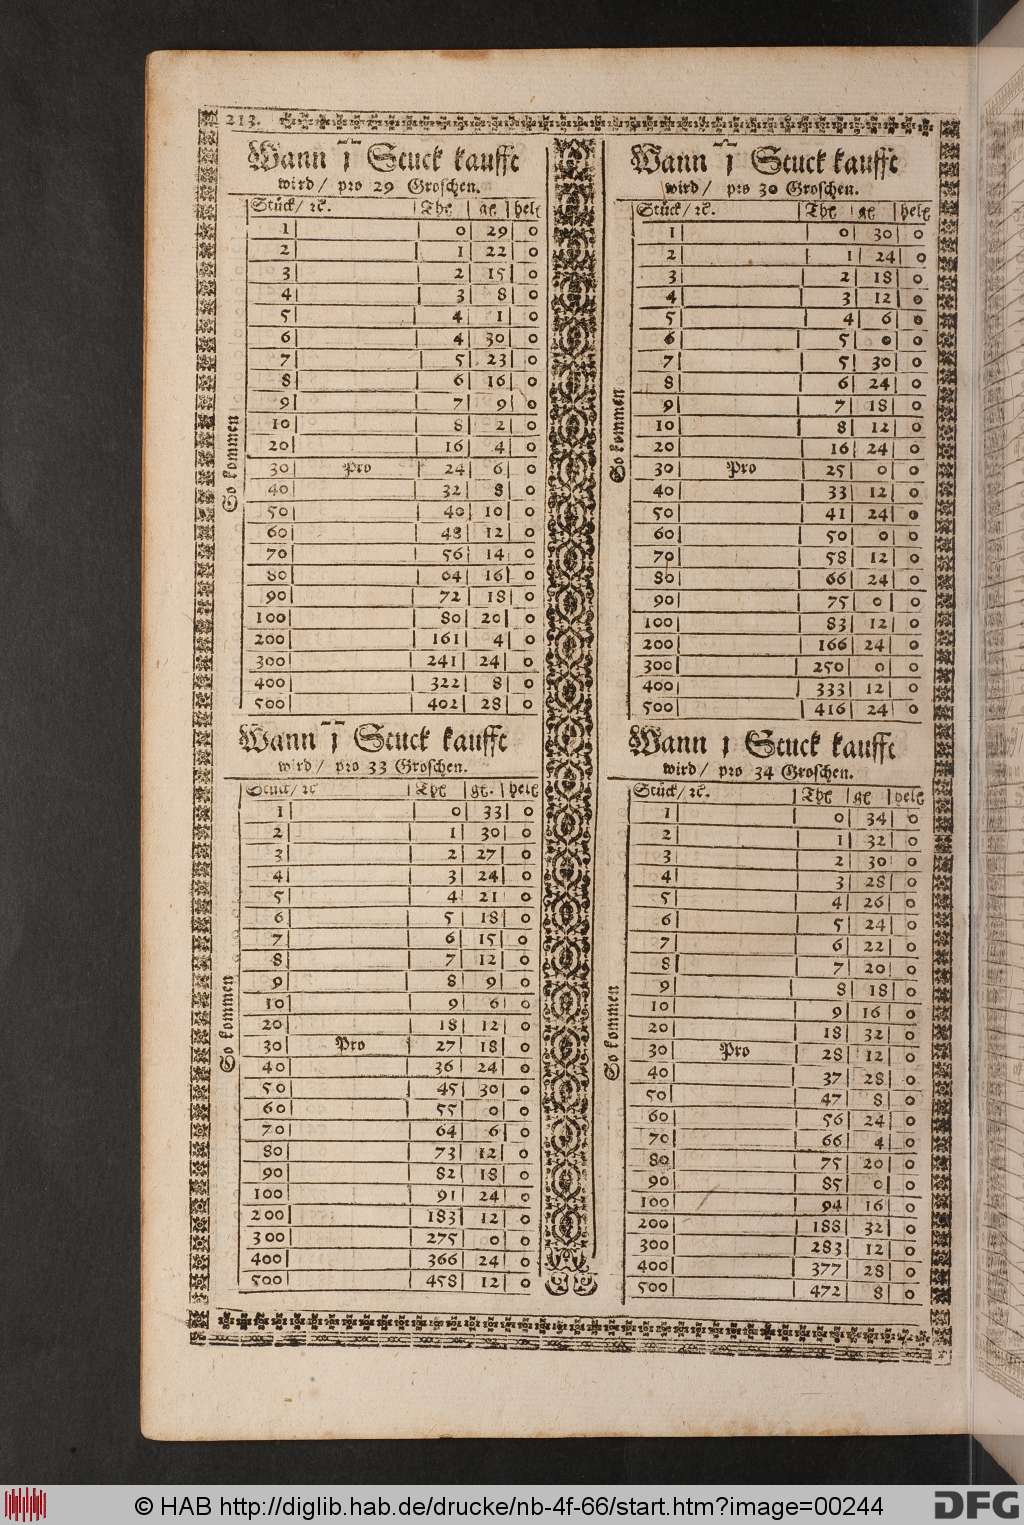 213.
Wann 1 Stuck kaufft
wird / pro 29 Groschen.
Stůck / ꝛc. Thl gl hell
1 0 29 0
2 1 22 0
3 2 15 0
4 3 8 0
5 4 1 0
6 4 30 0
7 5 23 0
8 6 16 0
9 7 9 0
10 8 2 0
20 16 4 0
30 Pro 24 6 0
40 32 8 0
50 40 10 0
60 48 12 0
70 56 14 0
80 64 16 0
90 72 18 0
100 80 20 0
200 161 4 0
300 241 24 0
400 322 8 0
500 402 28 0
So kommen
Wann 1 Stuck kaufft
wird / pro 30 Groschen.
Stůck / ꝛc. Thl gl hell
1 0 30 0
2 1 24 0
3 2 18 0
4 3 12 0
5 4 6 0
6 5 0 0
7 5 30 0
8 6 24 0
9 7 18 0
10 8 12 0
20 16 24 0
30 Pro 25 0 0
40 33 12 0
50 41 24 0
60 50 0 0
70 58 12 0
80 66 24 0
90 75 0 0
100 83 12 0
200 166 24 0
300 250 0 0
400 333 12 0
500 416 24 0
So kommen
Wann 1 Stuck kaufft
wird / pro 33 Groschen.
Stůck / ꝛc Thl gl. hell
1 0 33 0
2 1 30 0
3 2 27 0
4 3 24 0
5 4 21 0
6 5 18 0
7 6 15 0
8 7 12 0
9 8 9 0
10 9 6 0
20 18 12 0
30 Pro 27 18 0
40 36 24 0
50 45 30 0
60 55 0 0
70 64 6 0
80 73 12 0
90 82 18 0
100 91 24 0
200 183 12 0
300 275 0 0
400 366 24 0
500 458 12 0
So kommen
Wann 1 Stuck kaufft
wird / pro 34 Groschen.
Stůck / ꝛc. Thl gl hell
1 0 34 0
2 1 32 0
3 2 30 0
4 3 28 0
5 4 26 0
6 5 24 0
7 6 22 0
8 7 20 0
9 8 18 0
10 9 16 0
20 18 32 0
30 Pro 28 12 0
40 37 28 0
50 47 8 0
60 56 24 0
70 66 4 0
80 75 20 0
90 85 0 0
100 94 16 0
200 188 32 0
300 283 12 0
400 377 28 0
500 472 8 0
So kommen
© HAB http://diglib.hab.de/drucke/nb-4f-66/start.htm?image=00244
DFG